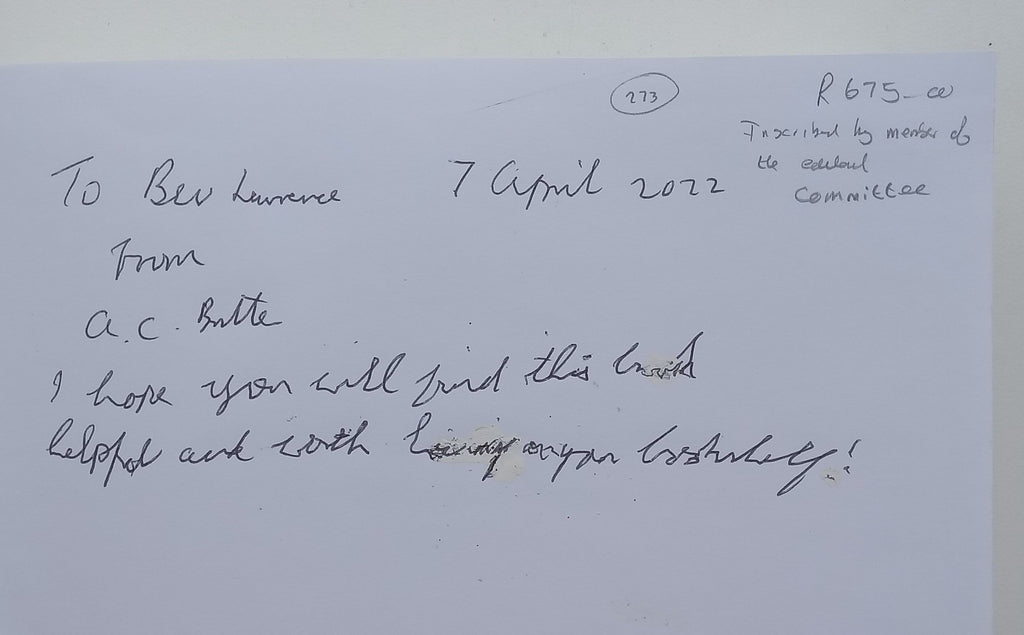 273
R675-00
Inscribed by member of
the editorial
Committee
To Bev Lawrence 7 April 2022
From
A.C. Butte
I hope you will find this book
helpful and worth having on your bookshelf!